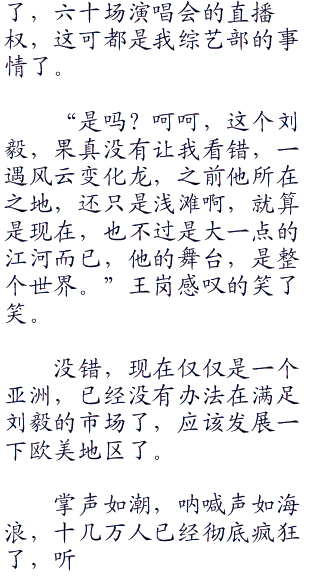 了，六十场演唱会的直播
权，这可都是我综艺部的事
情了。
“是吗？呵呵，这个刘
毅，果真没有让我看错，一
遇风云变化龙，之前他所在
之地，还只是浅滩啊，就算
是现在，也不过是大一点的
江河而已，他的舞台，是整
个世界。” 王岗感叹的笑了
笑。
没错，现在仅仅是一个
亚洲，已经没有办法在满足
刘毅的市场了，应该发展一
下欧美地区了。
掌声如潮，呐喊声如海
浪，十几万人已经彻底疯狂
了，听